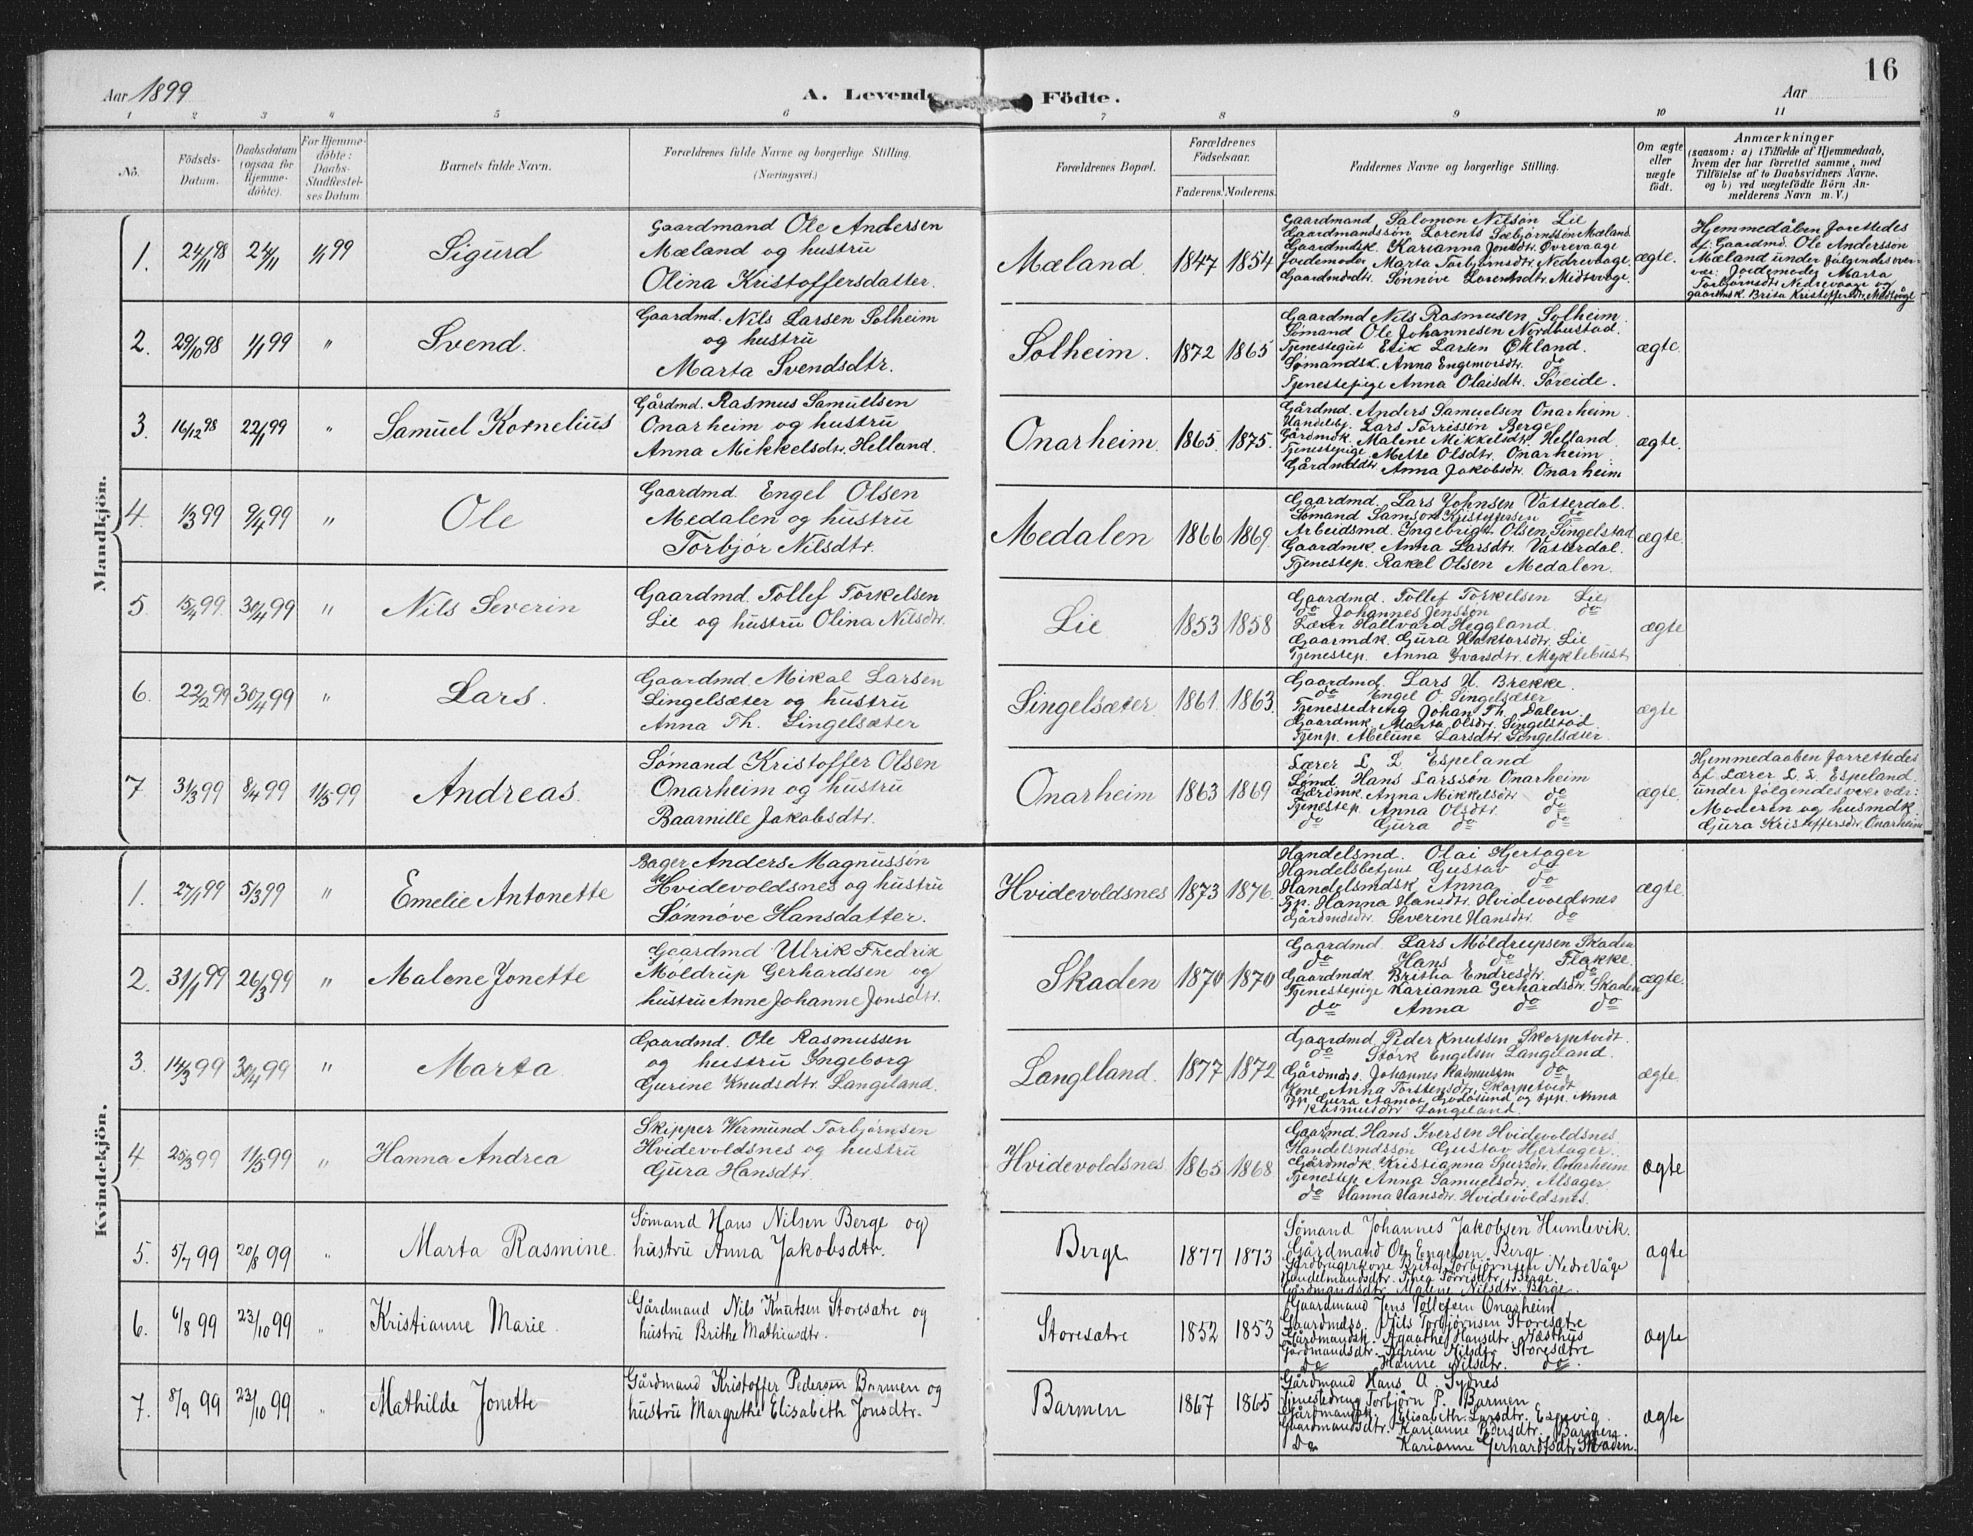 16
Aar 1899
A. Levende Födte.
Aar
1 2 3 4 5 6 7 8 9 10 11
No. Födsels-Datum. Daabsdatum (ogsaa for Hjemme-döbte). For Hjemme-döbte: Daabs-Stadfæstel-ses Datum. Barnets fulde Navn. Forældrenes fulde Navne og borgerlige Stilling. (Næringsvei.) Forældrenes Bopæl. Forældrenes Födselsaar. Faderens. Moderens. Faddernes Navne og borgerlige Stilling. Om ægte eller uægte födt. Anmærkninger
(saasom: a) i Tilfælde af Hjemmedaab, hvem der har forrettet samme, med Tilföielse af to Daabsvidners Navne, og b) ved uægtefödte Börn Anmelderens Navn m. V.)
Mandkjön.
1. 24/11 98 24/11 1/1 99 Sigurd
Gaardmand Ole Andersen
Mæland og hustru
Olina Kristoffersdatter.
Mæland. 1847 1854
Gaardmand Salomon Nilson Lie
Gaardmandssön Lorents Sæbjörnsson Mæland
Gaardmdsk. Karianna Jonsdtr. Øvrevaage
Jordemoder Marta Torbjörnsdtr. Nedrevaage
Gaardmdsdtr. Sönnöve Larsendtr. Midtvaage.
ægte.
Hjemmedåben forettedes
af: Gaardmd. Ole Andersson
Mæland under følgendes over-
vær: Jordemoder Marta
Torbjørnsdtr Nedrevaage og
gaardmsk. Brita Kristoffersdtr. Medvåge
2. 29/10 98 1/1 99 " Svend.
Gaardmd. Nils Larsen Solheim
og hustru
Marta Svendsdtr.
Solheim. 1872 1865
Gaardmd Nils Rasmusen Solheim.
Sømand Ole Johannesen Nordhustad.
Tjenestegut Erik Larsen Økland.
Sømandsk. Anna Engemorsdtr. do
Tjenestepige Anna Olaisdtr. Søreide.
ægte.
3. 16/12 98 22/1 99 " Samuel Kornelius
Gårdmd. Rasmus Samuelsen
Onarheim og hustru
Anna Mikkelsdtr. Helland.
Onarheim. 1865. 1875.
Gårdmd. Anders Samuelsen Onarheim.
Handelsbj. Lars Torrisson Berge
Gårdmdk. Malene Mikkelsdtr. Helland.
Tjenestepige Mette Olsdtr. Onarheim.
Gårdmdsdtr Anna Jakobsdtr. Onarheim
ægte.
4. 1/3 99 9/4 99 " Ole
Gaardmd. Engel Olsen
Medalen og hustru
Torbjør Nilsdtr.
Medalen 1866 1869.
Gaardmd. Lars Johnsen Vatterdal.
Sømand Samson Kristoffersen do
Arbeidsmd. Ingebrigt Olsen Singelstad
Gaardmk. Anna Larsdtr. Vatterdal.
Tjenestep. Rakel Olsen Medalen.
ægte.
5. 15/4 99. 30/4 99 " Nils Severin
Gaardmd. Tollef Torkelsen
Lie og hustru Olina Nilsdtr.
Lie 1853 1858
Gaardmd. Tollef Torkelsen Lie
do Johannes Jensson do
Lærer Hallvard Heggland.
Gaardmk. Gura Haktorsdtr. Lie
Tjenestep. Anna Ivarsdtr. Myklebust
ægte
6. 22/2 99 30/4 99 " Lars.
Gaardmd Mikal Larsen
Singelsæter og hustru
Anna Th. Singelsæter
Singelsæter. 1861. 1863.
Gaardmd. Lars H. Brekke.
do Engel O. Singelsæter
Tjenestedreng Johan Th. Dalen.
Gaardmk. Marta Olsdtr. Singelstad.
Tjenp. Abelune Larsdtr. Singelsæter.
ægte
7 31/3 99 8/4 99 11/5 99 Andreas.
Sømand Kristoffer Olsen
Onarheim og hustru
Baarnille Jakobsdtr.
Onarheim 1863 1869
Lærer L L Espeland
Sømd. Hans Larsson Onarheim
Gårdmk. Anna Mikkelsdtr do
Tjenestep. Anna Olsdtr. do
do Gura do do
ægte.
Hjemmedaaben forrettedes
af Lærer L. L. Espeland.
under følgendes overvær:
Moderen og husmdk
Gura Kristoffersdtr Onarheim
Kvindekjön.
1. 27/1 99 5/3 99 " Emelie Antonette
Bager Anders Magnusson
Hvidevoldsnes og hustru
Sønnöve Hansdatter.
Hvidevoldsnes 1873 1876.
Handelsmd. Olai Hjertager
Handelsbetjent Gustav do
Handelsmdsk Anna do
Tjp. Hanna Hansdtr. Hvidevoldsnes
Gårdmdsdtr. Severine Hansdtr. do
ægte.
2. 31/1 99 26/3 99 " Malene Jonette
Gaardmd Ulrik Fredrik
Møldrup Gerhardsen og
hustru Anne Johanne Jonsdtr.
Skaden 1870 1870
Gaardmd Lars Møldrupsen Skaden
do Hans do Flakke
Gaardmdk Britha Endresdtr. do
Tjenestepige Karianna Gerhardsdtr. Skaden
do Anna do do
ægte.
3. 14/3 99 30/4 99 " Marta
Gaardmd. Ole Rasmussen
og hustru Ingeborg
Gurine Knudsdtr. Langeland.
Langeland. 1877 1872
Gaardmd Peder Knutsen Skorpetvidt.
do Størk Engelsen Langeland.
Gårdmds. Johannes Rasmussen do
Kone Anna Torstensdtr. Skorpetvidt
Tjp. Gura Aamot, Godösund og tjp. Anna
Rasmusdtr Langeland.
ægte.
4 25/3 99 11/5 99 " Hanna Andrea
Skipper Wermund Torbjørnsen
Hvidevoldsnes og hustru
Gjura Hansdtr.
Hvidevoldsnes 1865 1868.
Gaardmd. Hans Iversen Hvidevoldsnes
Handelsmdssön Gustav Hjertager.
Gårdmdk. Kristianna Sjursdtr. Onarheim
Tjenestep. Anna Samuelsdtr. Alsager
do Hanna Hansdtr. Hvidevoldsnes.
ægte
5. 5/7 99 20/8 99 " Marta Rasmine.
Sömand Hans Nilsen Berge og
hustru Anna Jakobsdtr.
Berge 1877 1873
Sömand Johannes Jakobsen Humlevik.
Gårdmand Ole Engelsen Berge.
Gårdbrugerkone Brita Torbjørnsen Nedre Våge
Handelmandsdtr. Thea Torrisdtr. Berge
Gårdmandsdtr. Malene Nilsdtr. Berge.
ægte
6. 6/8 99 23/10 99 " Kristianne Marie.
Gårdmand Nils Knutsen Storesætre og
hustru Brithe Mathiasdtr.
Storesætre 1852 1853
Gaardmand Jens Tollefsen Onarheim
Gaardmdss. Nils Torbjørnsen Storesætre
Gårdmandsk. Agathe Hansdtr. Næsthus
Gårdmandsdtr. Karine Nilsdtr. Storesætre
do Hanne Nilsdtr. do.
ægte
7. 8/9 99 23/10 99 " Mathilde Jonette
Gårdmand Kristoffer Pedersen Barmen og
hustru Margrethe Elisabeth Jonsdtr.
Barmen 1867 1865
Gårdmand Hans A. Sydnes
Tjenestedreng Torbjörn P. Barmen
Gårdmandsk. Elisabeth Larsdtr. Espevig.
Gaardmandsdtr. Karianne Pedersdtr. Barmen.
Do Karianne Gerhardsdtr. Skaden.
ægte